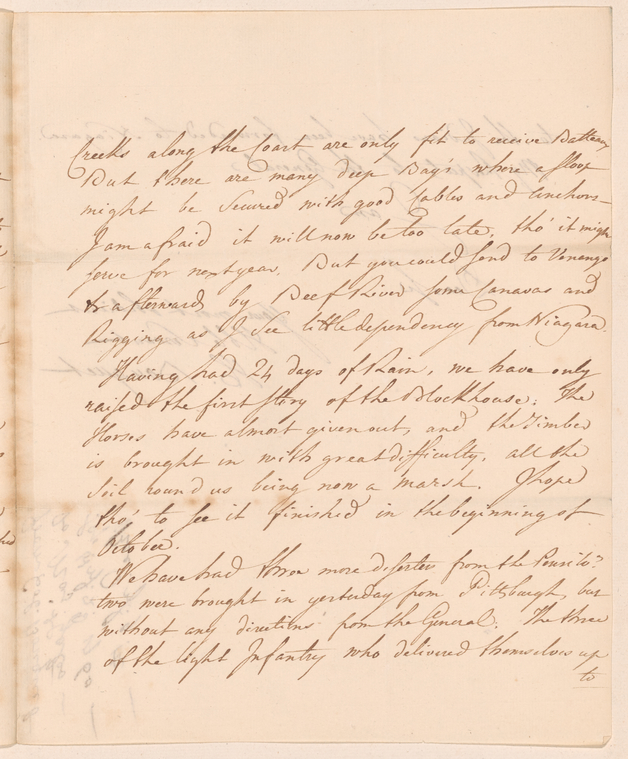 Creeks along the Coast are only fit to receive Batteaux
But there are many deep Bay's where a Sloop
might be Secured with good Cables and Anchors
I am afraid it will now be too late, tho' it might
serve for next year. But you could send to Venango
& afterwards by Beef River some Canavas and
Rigging as I See little dependency from Niagara.
Having had 24 days of Rain, we have only
raised the first Story of the Blockhouse: The
Horses have almost given out, and the Timber
is brought in with great difficulty, all the
Soil round us being now a marsh. I hope
tho', to see it finished in the beginning of
October.
We have had three more deserters from the
two were brought in yesterday from Pittsburgh, but
without any directions from the General: The three
of the light Infantry who delivered themselves up
to